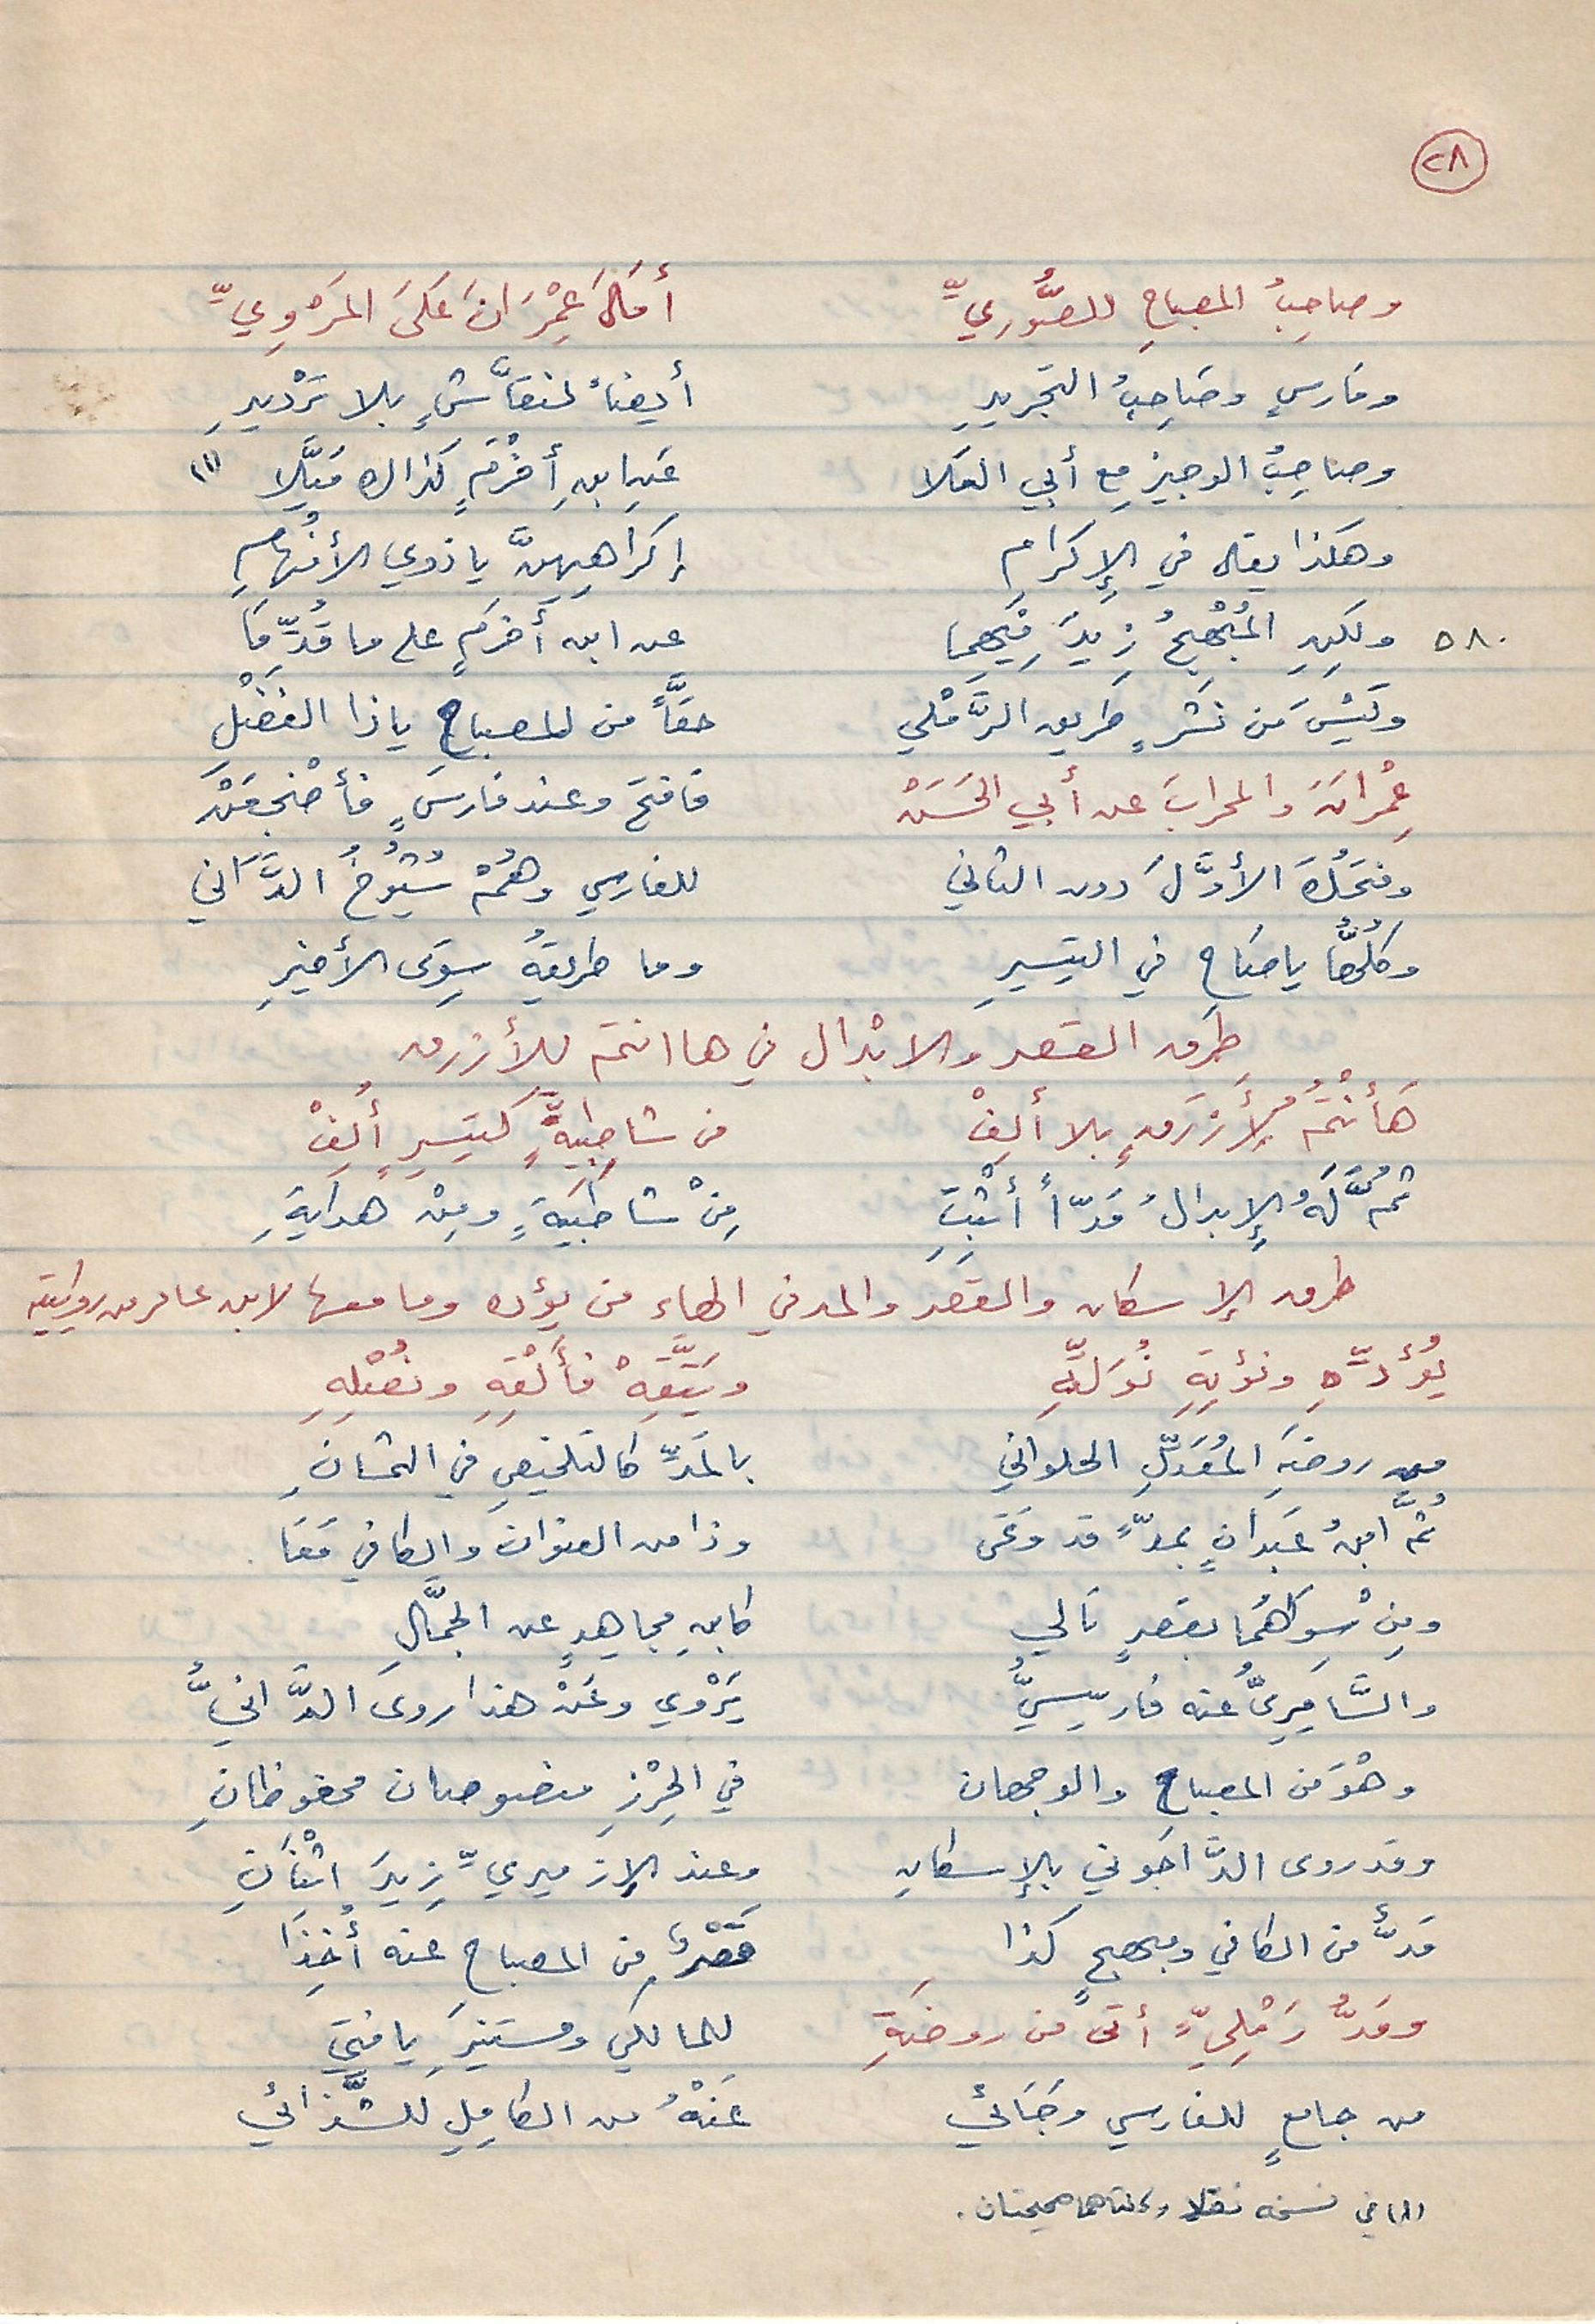 ٢٨
وصاحِبُ المصباحِ للصُّورِيِّ أمَالَ عِمْرَانَ عَلَى المَرْوِيِّ
وفارسٍ وصَاحِبُ التجريدِ أيضاً لنقَّاشٍ بلا تَرْديدِ
وصاحِبُ الوجيزِ مع أبي العَلا عَنِ ابنِ أخْرَمٍ كذاك مَيَّلا (١)
وهكذا يقال في الإكرامِ إكراهِهِنَّ يا ذوي الأفْهامِ
٥٨٠ ولكنِ المُبْهِجُ زِيدَ فِيهِما عن ابن أخرمٍ على ما قُدِّمَا
وَلَيْسَ مَن نَشْرٍ طريق الرَّمْلي حقَّاً من المصباحِ يا ذا الفَضْلِ
عِمْرانَ والمحرابَ عن أبي الحَسَنْ فافتحْ وعند فارسٍ فأضْجِعَنْ
وفتحُكَ الأوَّلَ دون الثاني للفارسي وهُمْ شُيُوخُ الدَّاني
وكلُّها يا صَاحِ في التيسيرِ وما طريقهُ سِوَى الأخيرِ
طرق القصر والابْدال في هاانتم للأزرق
هَأَنْتُمُ لأزْرَقٍ بلا ألِفْ من شاطِبيةٍ كتيسيرٍ أُلِفْ
ثُمَّ لَهُ الإبدالُ مَدّاً أثْبِتِ مِنْ شاطبيةٍ ومِنْ هدايةِ
طرق الإسكان والقصر والمد في الهاء من يؤده وما معها لابن عامر من روايتيه
يُؤَدِّهِ ونُؤتِهِ نُوَلِّهِ ويَتَّقِهْ فأَلْقِهِ ونُصْلِهِ
من روضةِ المُعَدِّلِ الحلواني بالمَدِّ كالتلخيصِ في الثمانِ
ثُمَّ ابنُ عَبدانٍ بمدٍّ قد وَعَى وذا من العنوان والكافي مَعَا
ومِنْ سِوَاهُمَا بقصرٍ تالي كابنِ مجاهدٍ عن الجمَّالِ
والسَّامَرِيُّ عنه فارسيُّ يَرْوي وعَنْ هذا روى الدَّانيُّ
وهْوَ من المصباحِ والوجهان في الحِرْزِ منصوصان محفوظانِ
وقد روى الدَّاجُوني بالإسكانِ وعند الإزميريِّ زِيدَ اثْنَانِ
مَدٌّ من الكافي ومبهجٍ كذا قَصْرٌ مِن المصباحِ عنه أُخِذَا
ومَدُّ رَمْلِيٍّ أتى من روضَةِ للمالكي ومستنيرَ يا فتى
من جامعٍ للفارسي وجَائي عَنْهُ من الكامِلِ للشَّذائي
(١) في نسخه نقلا وكلتاهما صحيحتان.